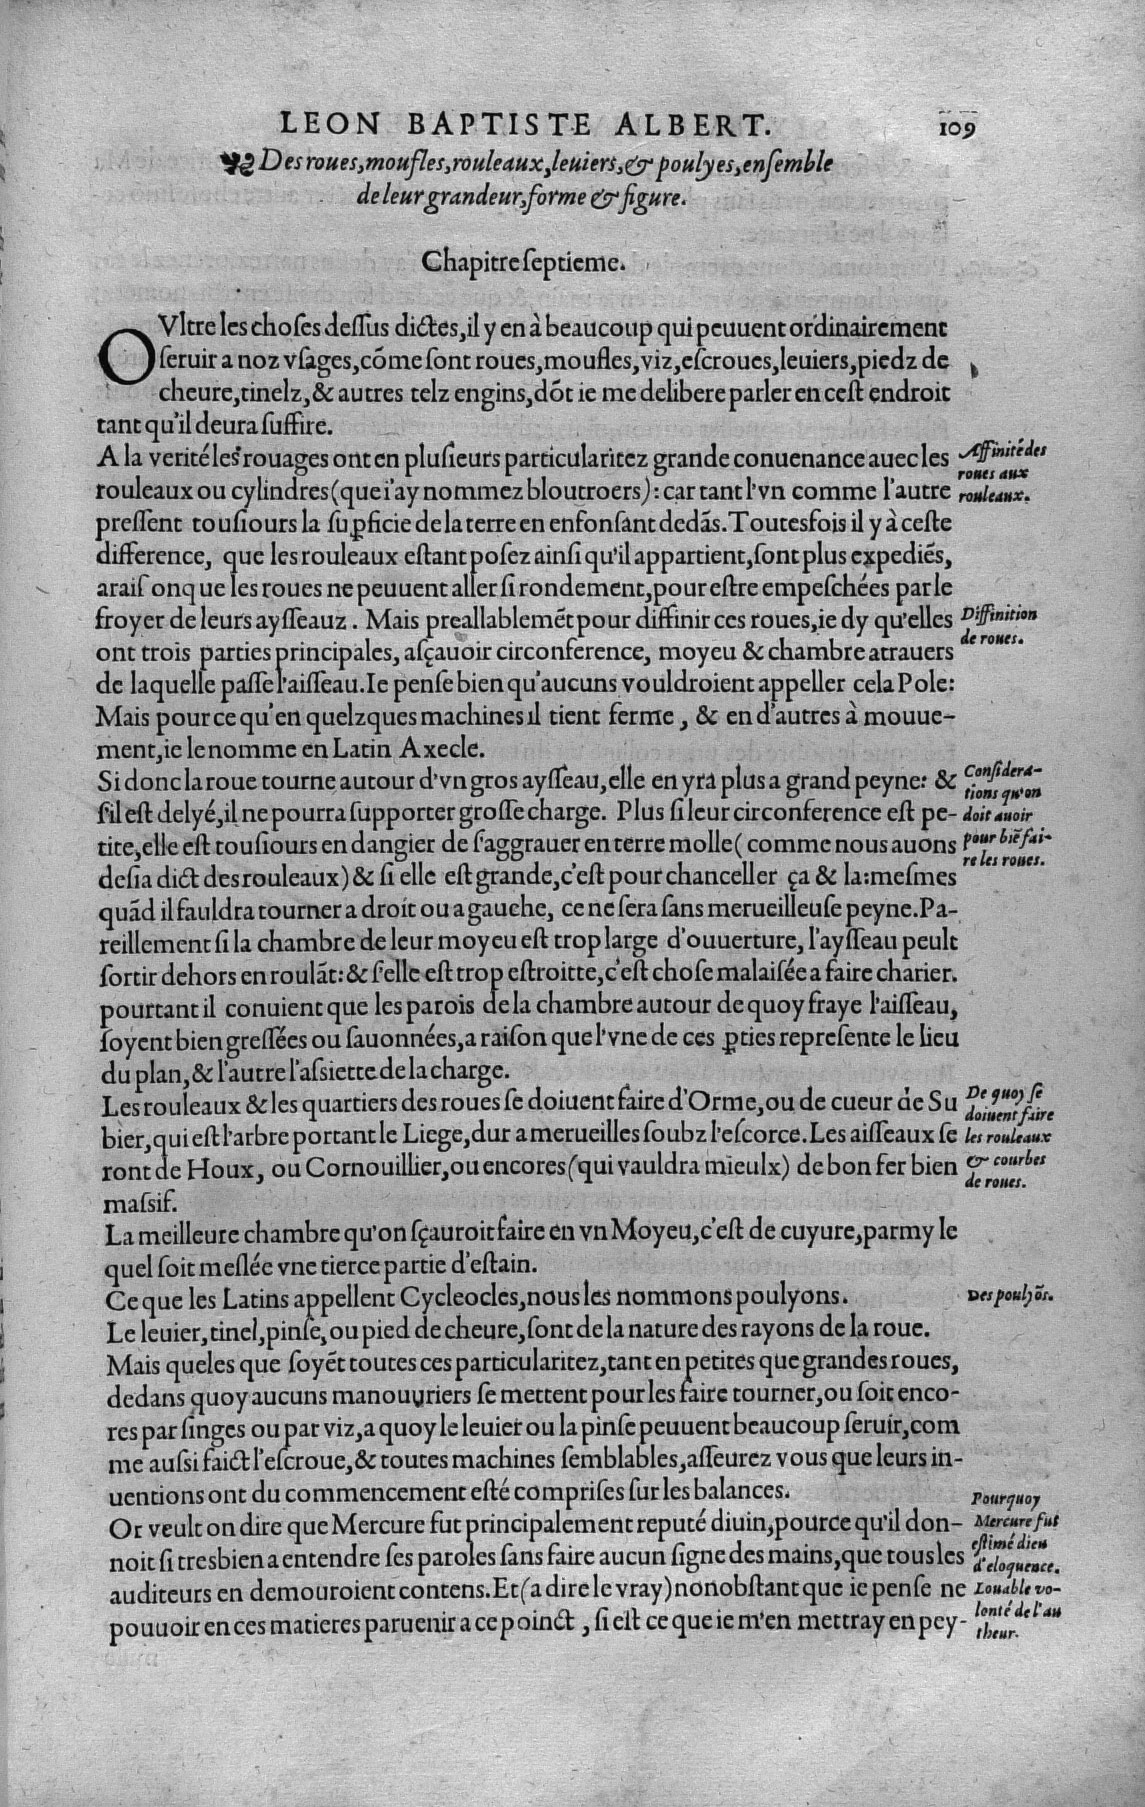 LEON BAPTISTE ALBERT. 109
Des roues, moufles, rouleaux, leuiers, & poulyes, ensemble
de leur grandeur, forme & figure.
Chapitre septieme.
OVltre les choses dessus dictes, il y en à beaucoup qui peuuent ordinairement
seruir a noz vsages, cõme sont roues, moufles, viz, escroues, leuiers, piedz de
cheure, tinelz, & autres telz engins, dõt ie me delibere parler en cest endroit
tant qu'il deura suffire.
A la verité les rouages ont en plusieurs particularitez grande conuenance auec les
Affinité des
roues aux
rouleaux.
rouleaux ou cylindres (que i'ay nommez bloutroers): car tant l'vn comme l'autre
pressent tousiours la suꝑficie de la terre en enfonsant dedãs. Toutesfois il y à ceste
difference, que les rouleaux estant posez ainsi qu'il appartient, sont plus expediẽs,
araison que les roues ne peuuent aller si rondement, pour estre empeschées par le
froyer de leurs aysseauz. Mais preallablemẽt pour diffinir ces roues, ie dy qu'elles
Diffinition
de roues.
ont trois parties principales, asçauoir circonference, moyeu & chambre atrauers
de laquelle passe l'aisseau. Ie pense bien qu'aucuns vouldroient appeller cela Pole:
Mais pource qu'en quelzques machines il tient ferme, & en d'autres à mouue-
ment, ie le nomme en Latin Axecle.
Si donc la roue tourne autour d'vn gros aysseau, elle en yra plus a grand peyne: &
Considera-
tions qu'on
doit auoir
pour biẽ fai-
re les roues.
s'il est delyé, il ne pourra supporter grosse charge. Plus si leur circonference est pe-
tite, elle est tousiours en dangier de s'aggrauer en terre molle (comme nous auons
desia dict des rouleaux) & si elle est grande, c'est pour chanceller ça & la: mesmes
quãd il fauldra tourner a droit ou a gauche, ce ne sera sans merueilleuse peyne. Pa-
reillement si la chambre de leur moyeu est trop large d'ouuerture, l'aysseau peult
sortir dehors en roulãt: & s'elle est trop estroitte, c'est chose malaisée a faire charier.
pourtant il conuient que les parois de la chambre autour de quoy fraye l'aisseau,
soyent bien gressées ou sauonnées, a raison que l'vne de ces ꝑties represente le lieu
du plan, & l'autre l'assiette de la charge.
Les rouleaux & les quartiers des roues se doiuent faire d'Orme, ou de cueur de Su
De quoy se
doiuent faire
les rouleaux
& courbes
de roues.
bier, qui est l'arbre portant le Liege, dur a merueilles soubz l'escorce. Les aisseaux se
ront de Houx, ou Cornouillier, ou encores (qui vauldra mieulx) de bon fer bien
massif.
La meilleure chambre qu'on sçauroit faire en vn Moyeu, c'est de cuyure, parmy le
quel soit meslée vne tierce partie d'estain.
Ce que les Latins appellent Cycleocles, nous les nommons poulyons.
Des poulyõs.
Le leuier, tinel, pinse, ou pied de cheure, sont de la nature des rayons de la roue.
Mais queles que soyẽt toutes ces particularitez, tant en petites que grandes roues,
dedans quoy aucuns manouuriers se mettent pour les faire tourner, ou soit enco-
res par singes ou par viz, a quoy le leuier ou la pinse peuuent beaucoup seruir, com
me aussi faict l'escroue, & toutes machines semblables, asseurez vous que leurs in-
uentions ont du commencement esté comprises sur les balances.
Or veult on dire que Mercure fut principalement reputé diuin, pource qu'il don-
Pourquoy
Mercure fut
estimé dieu
d'eloquence.
noit si tresbien a entendre ses paroles sans faire aucun signe des mains, que tous les
auditeurs en demouroient contens. Et (a dire le vray) nonobstant que ie pense ne
Louable vo-
lonté de l'au
theur.
pouuoir en ces matieres paruenir a ce poinct, si est ce que ie m'en mettray en pey-